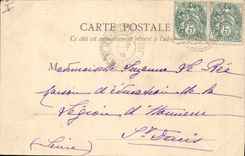 CARTE POSTALE
Ce côté est exclusivement réservé à l'adresse
5 5
Mademoiselle Suzanne Le Rée
Maison d'éducation de la
Légion d'Honneur
St Denis
(Seine)